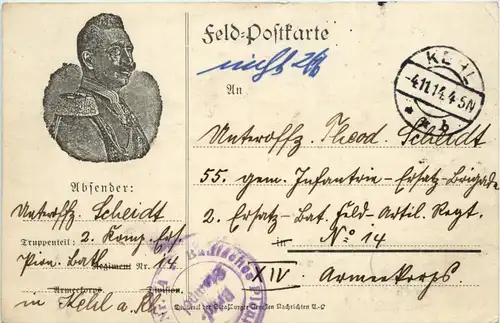 Feld-Postkarte
nicht
An
KEHL
-4.11.14.4-5N
* a b
Unteroffz. Theod. Scheidt
55. gem. Infantrie-Ersatz-Brigade
2. Ersatz-Bat. Feld-Artil. Regt.
in No 14
XIV Armeekorps.
Absender:
Unteroffz. Scheidt
Truppenteil: 2. Komp. Ers.
Pion. Batl. Regiment Nr. 14
Armeekorps Division.
in Kehl a. Rh.
Badisches